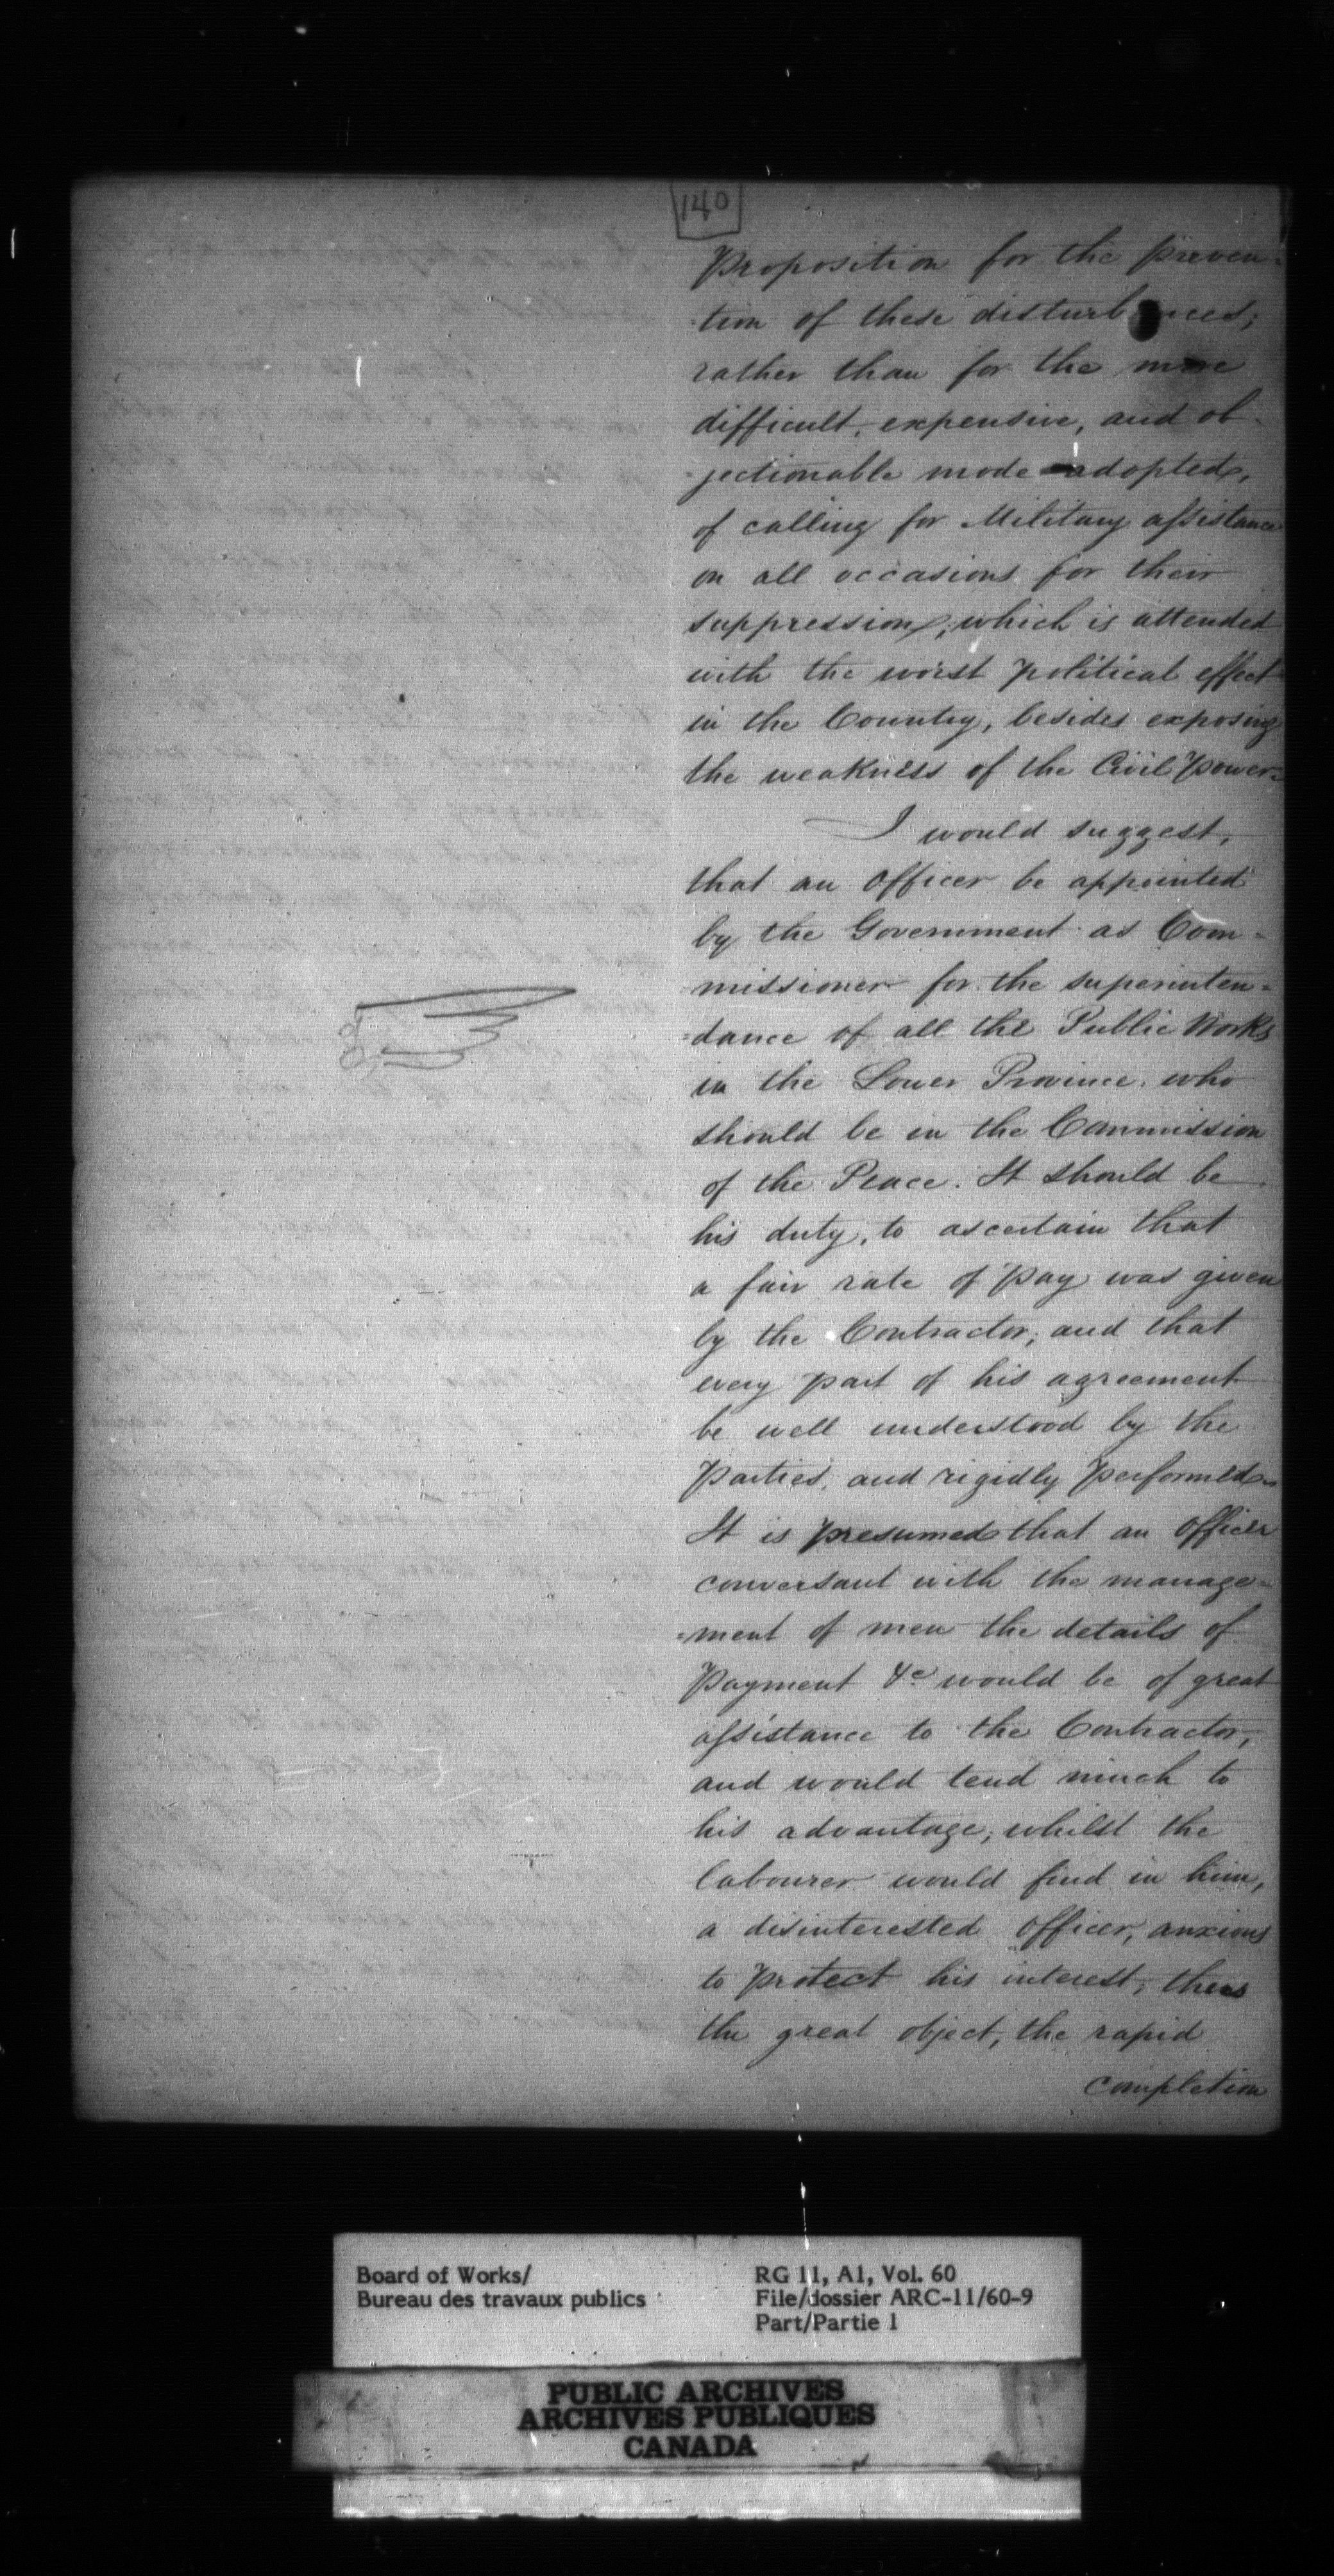 140
Proposition for the preven-
-tion of these disturbances;
rather than for the more
difficult, expensive, and ob-
-jectionable mode adopted,
of calling for Military assistance
on all occasions for their
suppression, which is attended
with the worst political effect
in the Country, besides exposing
the weakness of the Civil Power.
I would suggest,
that an Officer be appointed
by the Government as Com=
missioner for the superinten=
=dance of all the Public Works
in the Lower Province. who
should be in the Commission
of the Peace. It should be
his duty, to ascertain that
a fair rate of Pay was given
by the Contractor, and that
every part of his agreement
be well understood by the
Parties, and rigidly performed.
It is presumed that an Officer
conversant with the manage=
=ment of men the details of
Payment &c would be of great
assistance to the Contractor,
and would tend much to
his advantage; whilst the
labourer would find in him,
a disinterested Officer, anxious
to protect his interest, thus
the great object, the rapid
completion
Board of Works/
Bureau des travaux publics
RG 11, A1, Vol. 60
File/dossier ARC-11/60-9
Part/Partie 1
PUBLIC ARCHIVES
ARCHIVES PUBLIQUES
CANADA